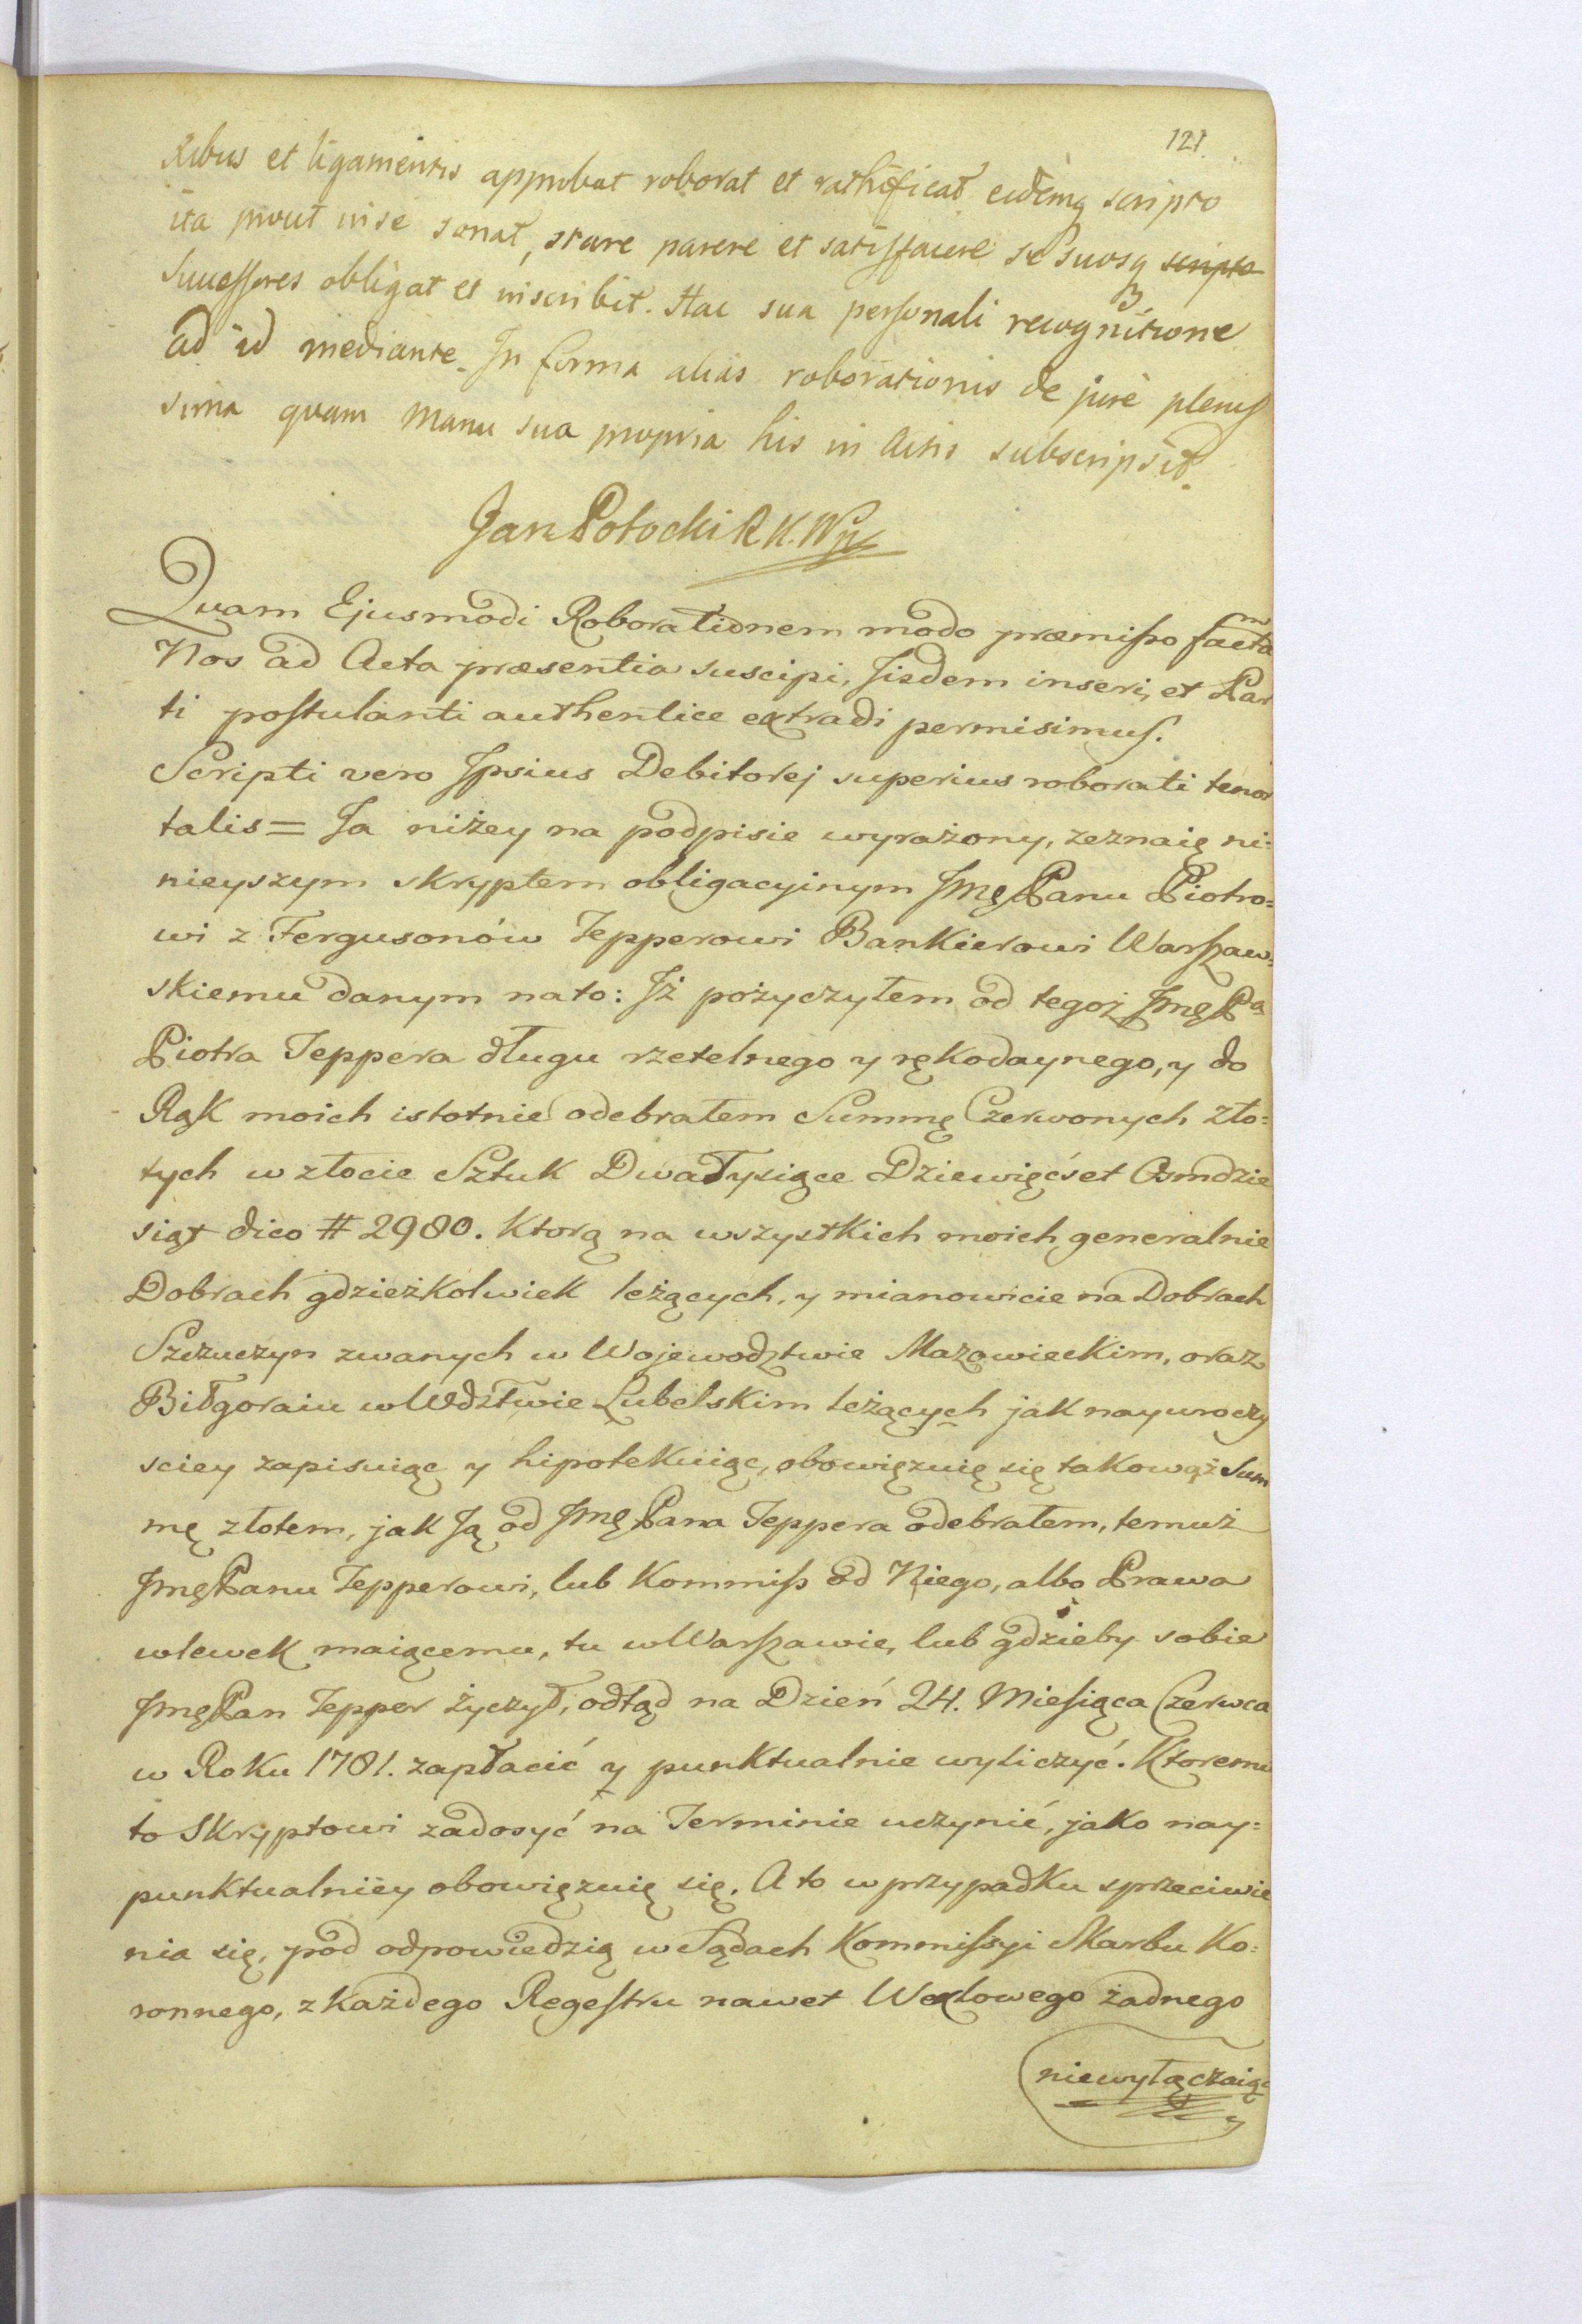 121.
xibus et ligamentis approbat roborat et rathificat eidemq scripto
ita prout in se sonat, stare parere et satisfacere se suosq scripto
Successores obligat et inscribit. Hac sua personali recognitione
ad id mediante. In forma alias roborationis de jure plenis
sima quam Manu sua propria his in Actis subscripsit.
Jan Potocki R. K. W.
Quam Ejusmodi Roborationem modo præmisso factam
Nos ad Acta præsentia suscipi, Iisdem inseri, et Par
ti postulanti authentice extradi permisimus.
Scripti vero Ipsius Debitorej superius roborati tenor
talis = Ja niżey na podpisie wyrażony, zeznaię ni:
nieyszym skryptem obligacyinym Jmę Panu Piotro=
wi z Fergusonów Tepperowi Bankierowi Warszaw=
skiemu danym na to: Iż pożyczyłem od tegoż Jmę Pa
Piotra Teppera długu rzetelnego y rękodaynego, y do
Rąk moich istotnie odebrałem Summę Czerwonych zło=
tych w złocie Sztuk Dwa Tysiące Dziewięćset Osmdzie
siąt dico # 2980. Ktorą na wszystkich moich generalnie
Dobrach gdzieżkolwiek leżących, y mianowicie na Dobrach
Szczuczyn zwanych w Wojewodztwie Mazowieckim, oraz
Biłgoraiu w Wdztwie Lubelskim leżących jak nayuroczy
sciey zapisuiąc y hipotekuiąc, obowięzuię się takowąż Sum
mę złotem, jak Ją od Jmę Pana Teppera odebrałem, temuż
Jmę Panu Tepperowi, lub Kommiss od Niego, albo Prawa
wlewek maiącemu, tu w Warszawie, lub gdzieby sobie
Jmę Pan Tepper życzył, odtąd na Dzień 24. Miesiąca Czerwca
w Roku 1781. zapłacić y punktualnie wyliczyć. Ktoremu
to Skryptowi zadosyć na Terminie uczynić, jako nay=
punktualniey obowięzuię się. A to w przypadku sprzeciwie
nia się, pod odpowiedzią w Sądach Kommissyi Skarbu Ko:
ronnego, z każdego Regestru nawet Wexlowego żadnego
niewyłączaiąc